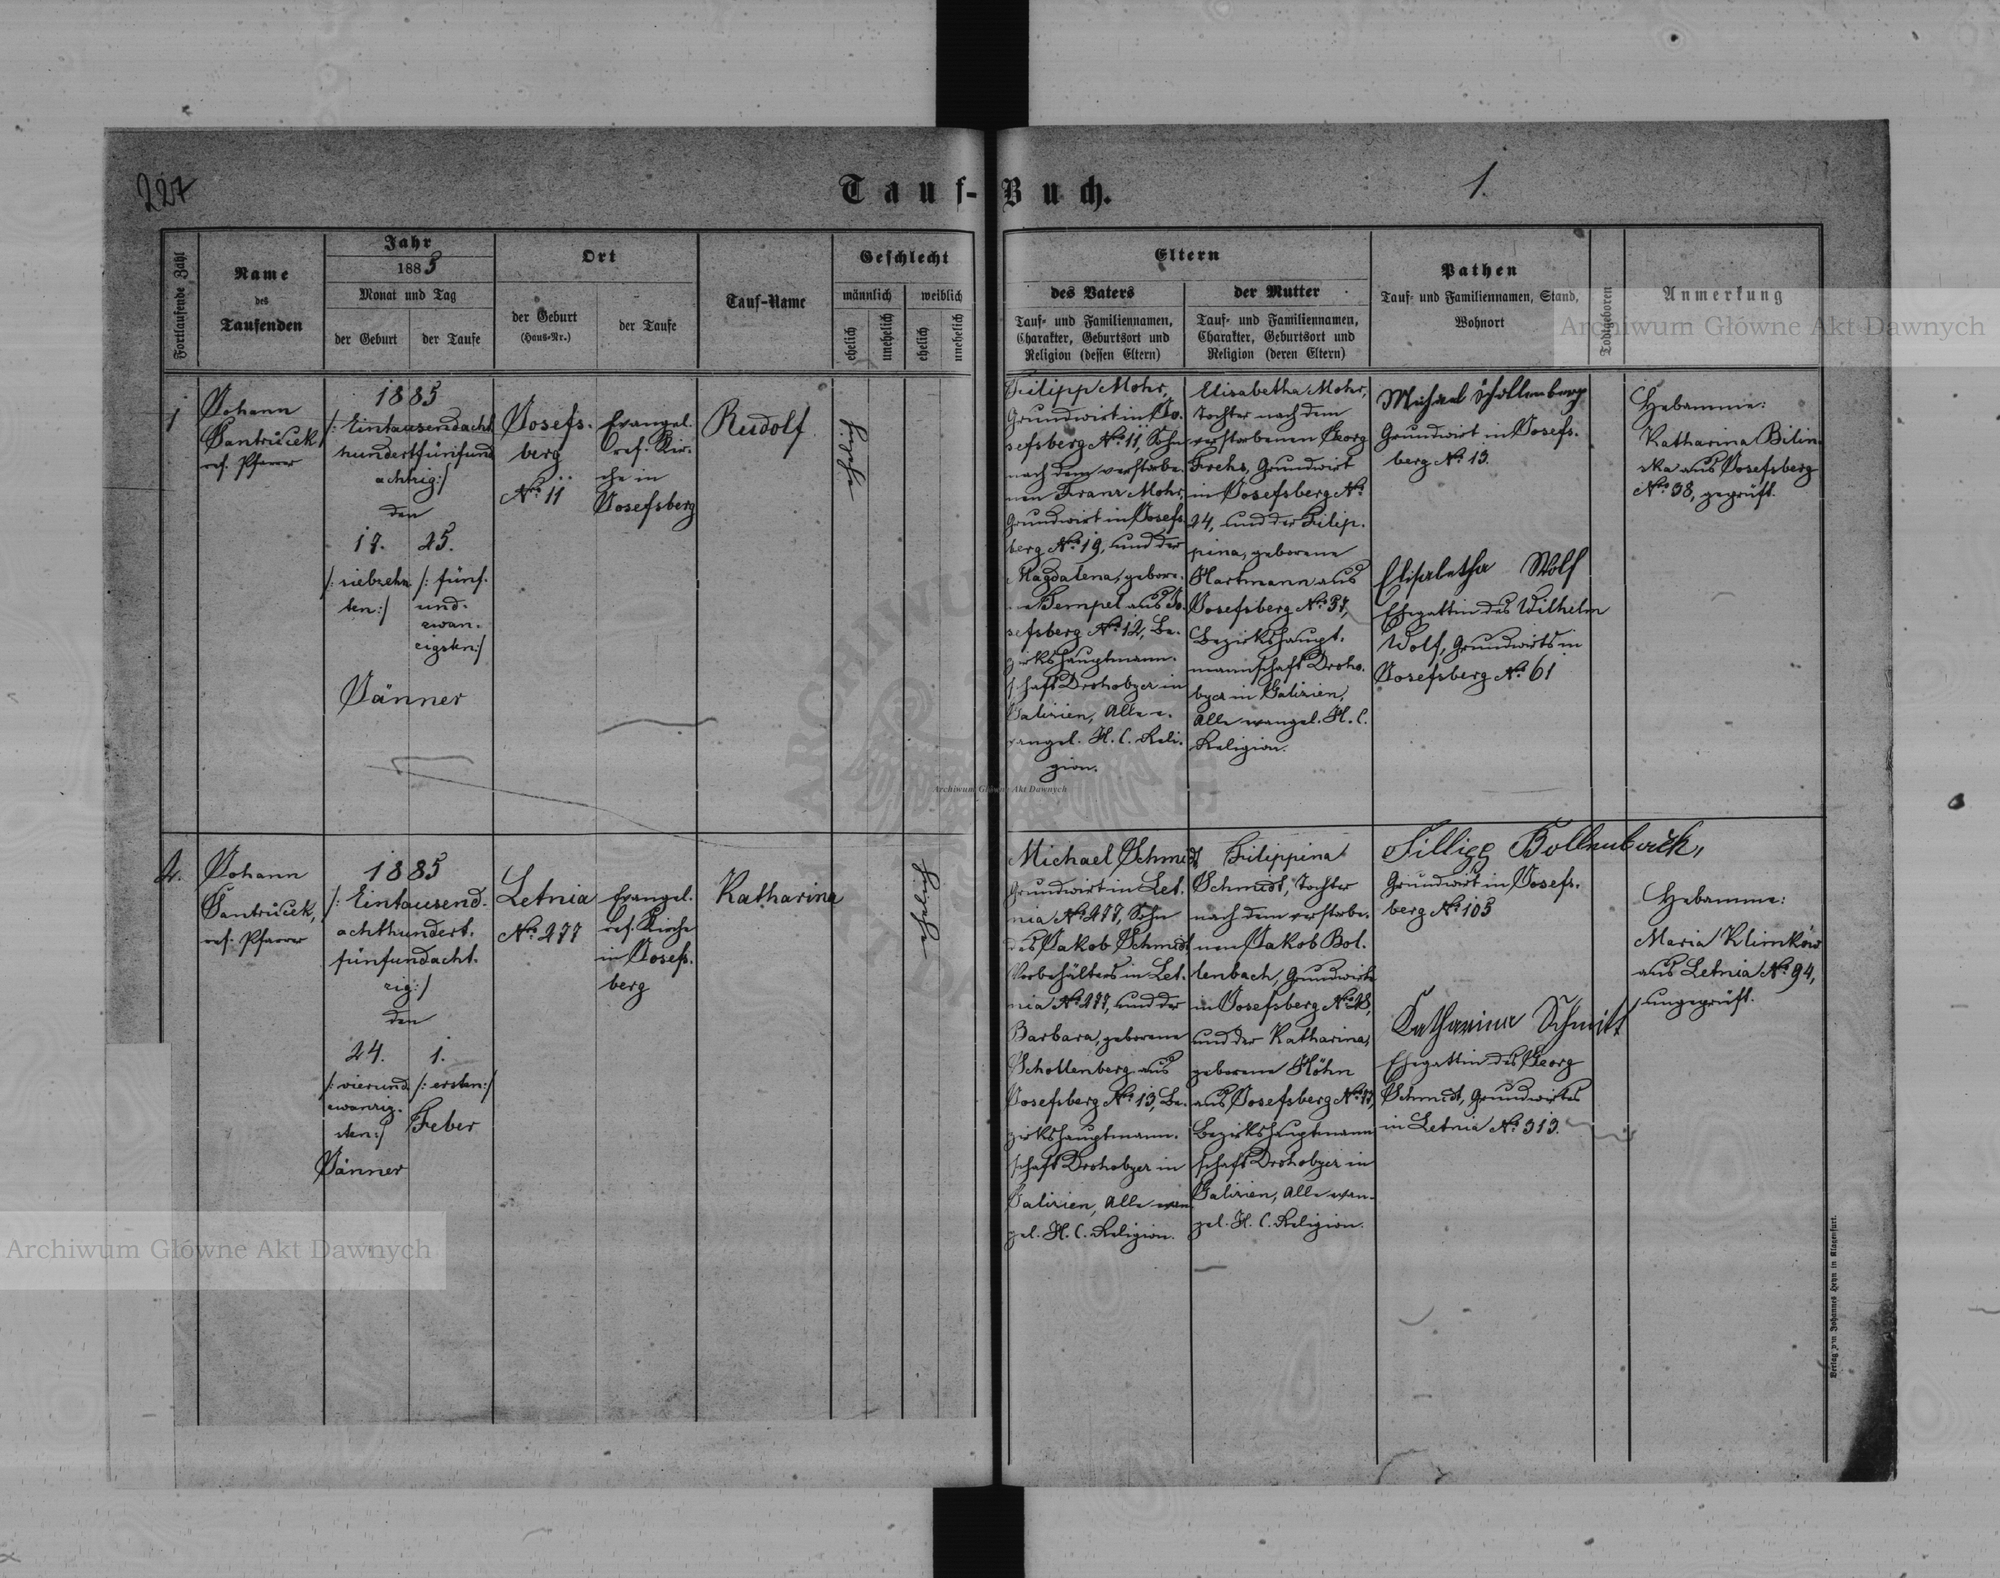 227
Tauf-Buch.
1.
Fortlaufende Zahl
Name
des
Taufenden
Jahr
1885
Monat und Tag
der Geburt
der Taufe
Ort
der Geburt
(Haus-Nr.)
der Taufe
Tauf-Name
Geschlecht
männlich
weiblich
ehelich
unehelich
ehelich
unehelich
Eltern
des Vaters
Tauf- und Familiennamen,
Charakter, Geburtsort und
Religion (dessen Eltern)
der Mutter
Tauf- und Familiennamen,
Charakter, Geburtsort und
Religion (deren Eltern)
Pathen
Tauf- und Familiennamen, Stand,
Wohnort
Todtgeboren
Anmerkung
1
Johann
ref. Pfarrer
1885
/: Eintausendacht
hundertfünfund
achtzig :/
den
17.
/: siebzehn
ten :/
25.
/: fünf-
und-
zwan-
zigsten :/
Jänner
Josefs-
berg
No. 11
Evangel.
ref. Kir-
che in
Josefsberg
Rudolf
ehelich
Filipp Mohr,
Grundwirt in Jo-
sefsberg No. 11, Sohn
nach dem verstorbe-
nen Franz Mohr,
Grundwirt in Josefs
berg No. 19, und der
Magdalena, gebore-
ne Tempel aus Jo-
sefsberg No. 12, Be-
zirkshauptmann-
schaft Drohobycz in
Galizien, Alle e-
vangel. H. C. Reli-
gion.
Elisabetha Mohr,
Tochter nach dem
verstorbenen Georg
Grundwirt
in Josefsberg No.
24, und der Filip-
pina, geborene
Hartmann aus
Josefsberg No. 37,
Bezirkshaupt-
mannschaft Droho-
bycz in Galizien,
Alle evangel. H. C.
Religion.
Michael Schollenberg
Grundwirt in Josefs-
berg No. 13.
Elisabetha Wolf
Ehegattin des Wilhelm
Wolf, Grundwirts in
Josefsberg No. 61
Hebamme:
Katharina Bilin-
ska aus Josefsberg
No. 38, geprüft.
2.
Johann
ref. Pfarrer
1885
/: Eintausend-
achthundert-
fünfundacht-
zig :/
den
24.
/: vierund
zwanzig-
sten :/
Jänner
1.
/: ersten :/
Feber
Letnia
No. 277
Evangel.
ref. Kirche
in Josefs-
berg
Katharina
ehelich
Michael Schmidt
Grundwirt in Let-
nia No. 277, Sohn
des Jakob Schmidt
Vorbehälters in Let-
nia No. 277, und der
Barbara, geborene
Schollenberg aus
Josefsberg No. 13, Be-
zirkshauptmann-
schaft Drohobycz in
Galizien, Alle evan
gel. H. C. Religion.
Filippina
Schmidt, Tochter
nach dem verstorbe-
nen Jakob Bol-
lenbach, Grundwirts
in Josefsberg No. 28,
und der Katharina,
geborene Höhn
aus Josefsberg No. 73,
Bezirkshauptmann
schaft Drohobycz in
Galizien, Alle evan-
gel. H. C. Religion.
Fillipp Bollenbach,
Grundwirt in Josefs-
berg No. 105
Katharina Schmitt
Ehegattin des Georg
Schmidt, Grundwirtes
in Letnia No. 313.
Hebamme:
Maria Klimków
aus Letnia No. 94,
ungeprüft.
Verlag von Johannes Heyn in Klagenfurt.
Archiwum Główne Akt Dawnych
Archiwum Główne Akt Dawnych
Archiwum Główne Akt Dawnych